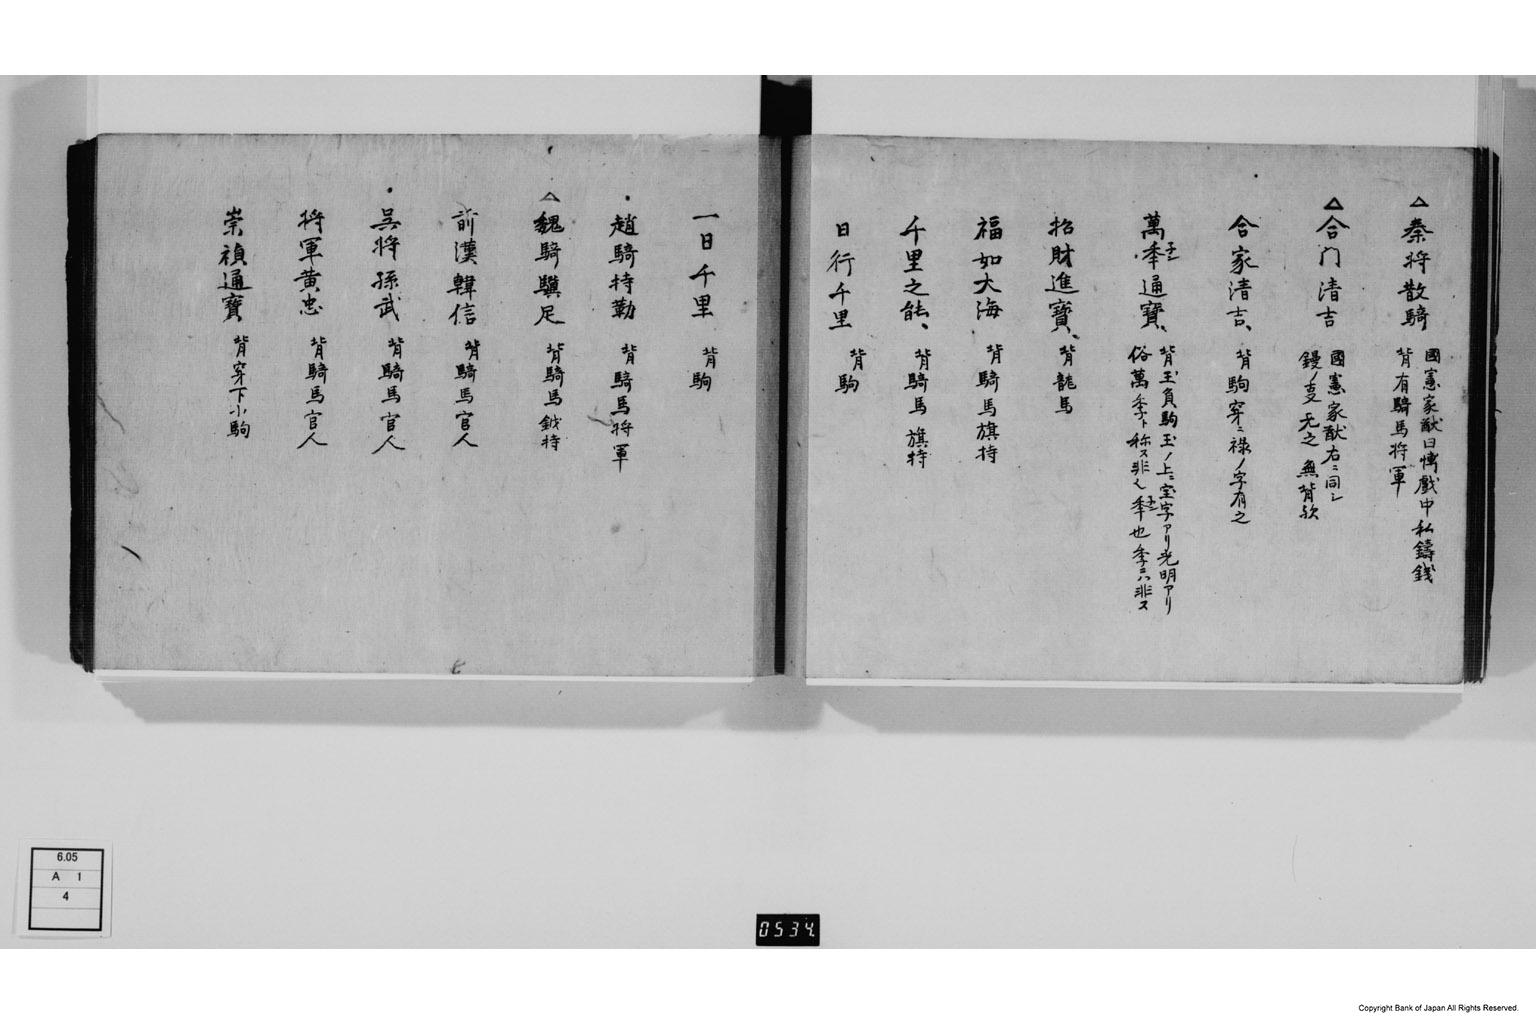 △秦将散騎
國憲家猷曰博戯中私鑄錢
背有騎馬将軍
△合门清吉
國憲家猷右ニ同シ
鏝ノ文无之 無背欤
合家清吉、
背駒穿ニ祿ノ字有之
萬秊通寶、
背玉負駒玉ノ上ニ宝字アリ光明アリ
俗萬季ト称ス非也
招財進寶、
背龍馬
福如大海
背騎馬旗持
千里之能、
背騎馬旗持
日行千里
背駒
一日千里
背駒
趙騎特勤
背騎馬将軍
△魏騎驥足
背騎馬鉞持
前漢韓信
背騎馬官人
呉将孫武
背騎馬官人
将軍黄忠
背騎馬官人
崇禎通寶
背穿下小駒
6.05
A 1
4
0534
Copyright Bank of Japan All Rights Reserved.